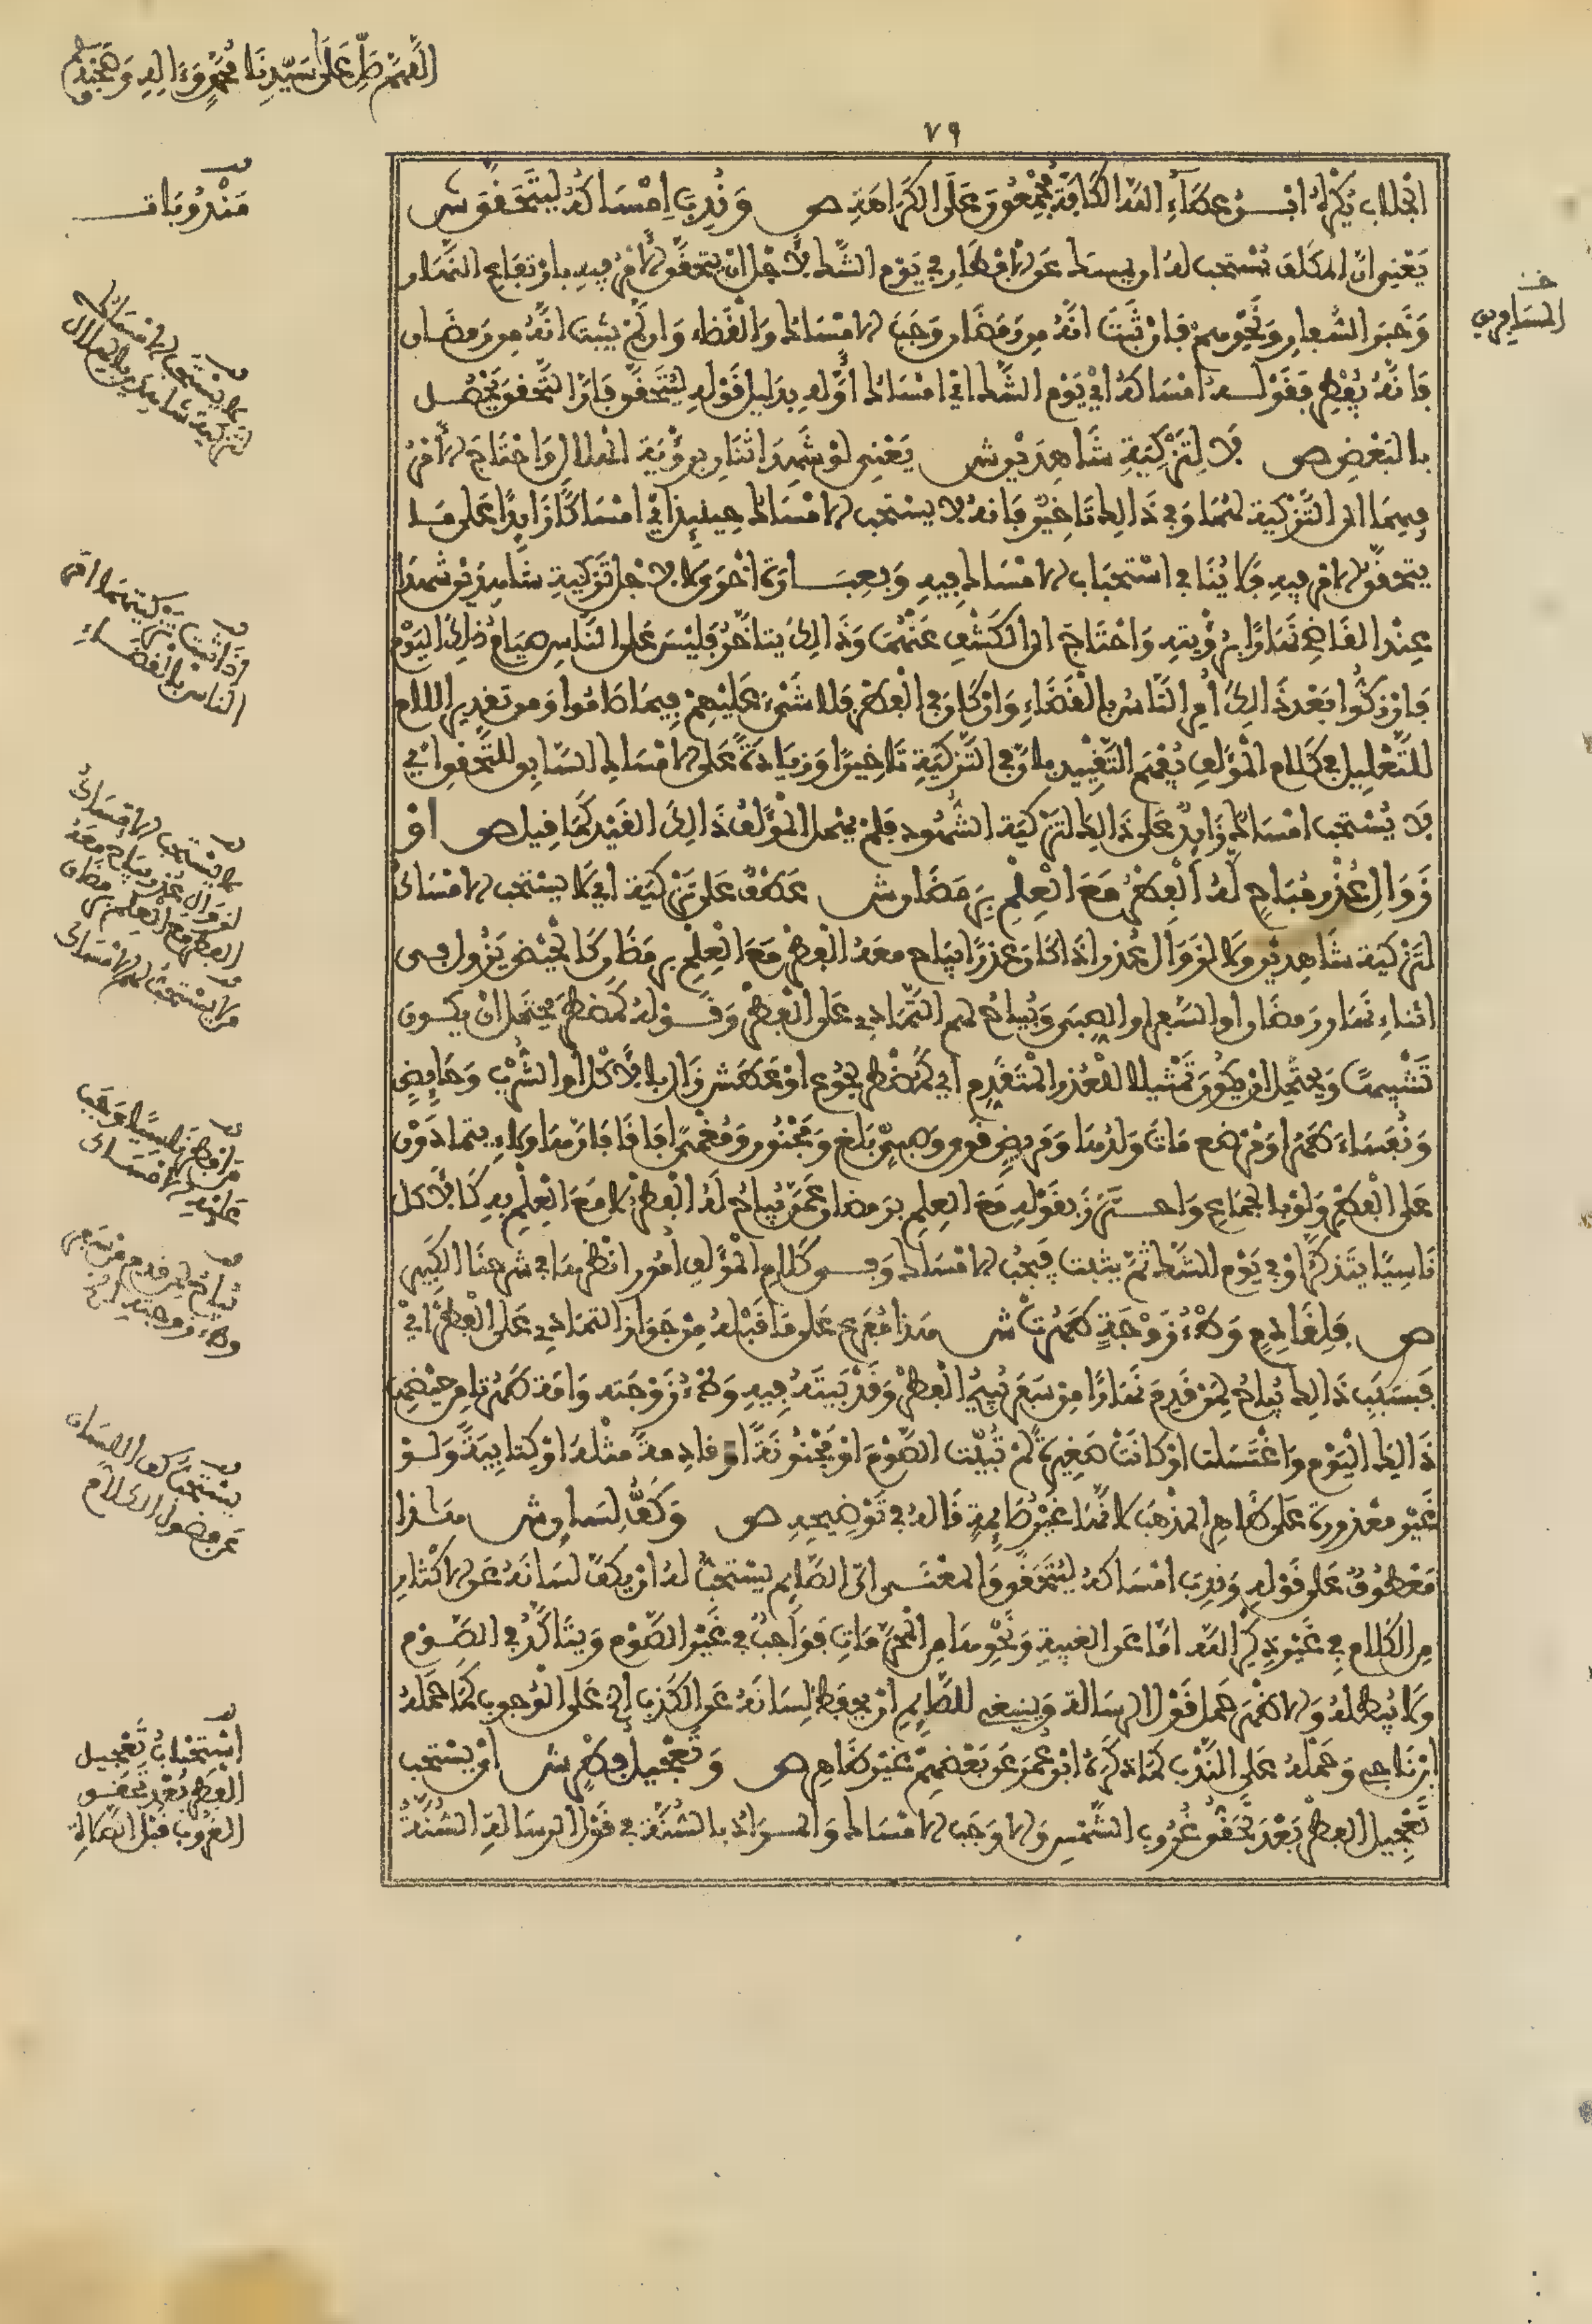 اللهم صل على سيدنا محمد وءاله وصحبه وسلم
٧٩
الجلاب يكره ابن عطاء الله الكافة مجمعون على الكراهة ص وندب إمساكه ليتحقق ش
يعني ان المكلف يستحب له ان يمسك عن الافطار في يوم الشك لاجل ان يتحقق الامر فيه بارتفاع النهار
وخبر السفار ونحوهم فان ثبت انه من رمضان وجب الامساك والقضاء وان لم يثبت انه من رمضان
فانه يفطر فقوله امساكه اي يوم الشك اي امساك اوله بدليل قوله ليتحقق فان التحقق يحصل
بالبعض ص لا لتزكية شاهدين ش يعني لو شهد اثنان برؤية الهلال واحتاج الامر
فيهما الى التزكية لهما وفي ذالك تاخير فانه لا يستحب الامساك حينئذ اي امساكا زايدا على ما
يتحقق الامر فيه فلا ينافي استحباب الامساك فيه وبعبارة اخرى لا لاجل تزكية شاهدين شهدا
عند القاضي نهارا برؤيته واحتاج الى الكشف عنهما وذالك يتاخر فليس على الناس صيام ذلك اليوم
فان زكوا بعد ذالك امر الناس بالقضاء وان كان في الفطر فلا شيء عليهم فيما صاموا ومن تقدير اللام
للتعليل في كلام المؤلف يفهم التقييد بان في التزكية تاخيرا وزيادة على الامساك السابق للتحقق اي
لا يستحب امساك زايد على ذالك لتزكية الشهود فلم يهمل المؤلف ذالك القيد كما قيل ص او
زوال عذر مباح له الفطر مع العلم برمضان ش عطف على تزكية اي لا يستحب الامساك
لتزكية شاهدين ولا لزوال عذر اذا كان عذرا يباح معه الفطر مع العلم برمضان كالحيض يزول في
اثناء نهار رمضان او السفر او الصبى ويباح لهم التمادي على الفطر وقوله كمضطر يحتمل ان يكون
تشبيها ويحتمل ان يكون تمثيلا للعذر المتقدم اي كمضطر لجوع او عطش زال بالاكل او الشرب وحايض
ونفساء طهرتا ومرضع مات ولدها ومريض قوي وصبي بلغ ومجنون ومغمى افاقا فان هاولاء يتمادون
على الفطر ولو بالجماع واحترز بقوله مع العلم برمضان عمن يباح له الفطر لا مع العلم به كالاكل
ناسيا يتذكر او في يوم الشك ثم يثبت فيجب الامساك وفي كلام المؤلف امور انظرها في شرحنا الكبير
ص فلقادم وطء زوجة طهرت ش هذا مفرع على ما قبله من جواز التمادي على الفطر اي
فبسبب ذالك يباح لمن قدم نهارا من سفر يبيح الفطر وقد بيته فيه وطء زوجته وامة طهرتا من حيضهما
ذالك اليوم واغتسلت او كانت صغيرة لم تبيت الصوم او مجنونة او قادمة مثله او كتابية ولو
غير معذورة على ظاهر المذهب لانها غير صايمة قاله في توضيحه ص وكف لسان ش هذا
معطوف على قوله وندب امساكه ليتحقق والمعنى ان الصايم يستحب له ان يكف لسانه عن الاكثار
من الكلام في غير ذكر الله اما عن الغيبة ونحوها من المحرمات فواجب في غير الصوم ويتاكد في الصوم
ولا يبطله والاظهر حمل قول الرسالة وينبغي للصايم ان يحفظ لسانه عن الكذب اي على الوجوب كما حمله
ابن ناجي وحمله على الندب كما ذكره ابو عمر عن بعضهم غير ظاهر ص وتعجيل فطر ش اي يستحب
تعجيل الفطر بعد تحقق غروب الشمس والا وجب الامساك والمراد بالسنة في قول الرسالة السنة
مندوبات
لا يستحب الامساك
لتزكية شاهدين بالهلال
اذا ثبت تزكيتهما امر
الناس بالقضاء
لا يستحب الامساك
لزوال عذر يباح معه
الفطر مع العلم برمضان
من يستحب لهم الامساك
من افطر ناسيا وجب
عليه الامساك
يباح لمن قدم من سفر
وطء زوجته الخ
يستحب كف اللسان
عن فضول الكلام
استحباب تعجيل
الفطر بعد تحقق
الغروب قبل الصلاة